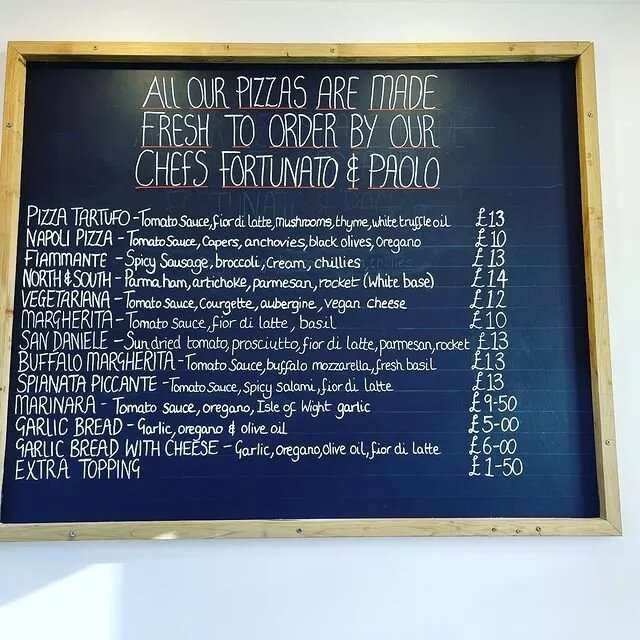 ALL OUR PIZZAS ARE MADE
FRESH TO ORDER BY OUR
CHEFS FORTUNATO & PAOLO
PIZZA TARTUFO - Tomato Sauce, fior di latte, mushrooms, thyme, white truffle oil £13
NAPOLI PIZZA - Tomato Sauce, Capers, anchovies, black olives, Oregano £10
FIAMMANTE - Spicy Sausage, broccoli, Cream, chillies £13
NORTH & SOUTH - Parma ham, artichoke, parmesan, rocket (White base) £14
VEGETARIANA - Tomato Sauce, Courgette, aubergine, vegan cheese £12
MARGHERITA - Tomato Sauce, fior di latte, basil £10
SAN DANIELE - Sun dried tomato, prosciutto, fior di latte, parmesan, rocket £13
BUFFALO MARGHERITA - Tomato Sauce, buffalo mozzarella, fresh basil £13
SPIANATA PICCANTE - Tomato Sauce, spicy salami, fior di latte £13
MARINARA - Tomato sauce, oregano, Isle of Wight garlic £9-50
GARLIC BREAD - Garlic, oregano & olive oil £5-00
GARLIC BREAD WITH CHEESE - Garlic, oregano, olive oil, fior di latte £6-00
EXTRA TOPPING £1-50